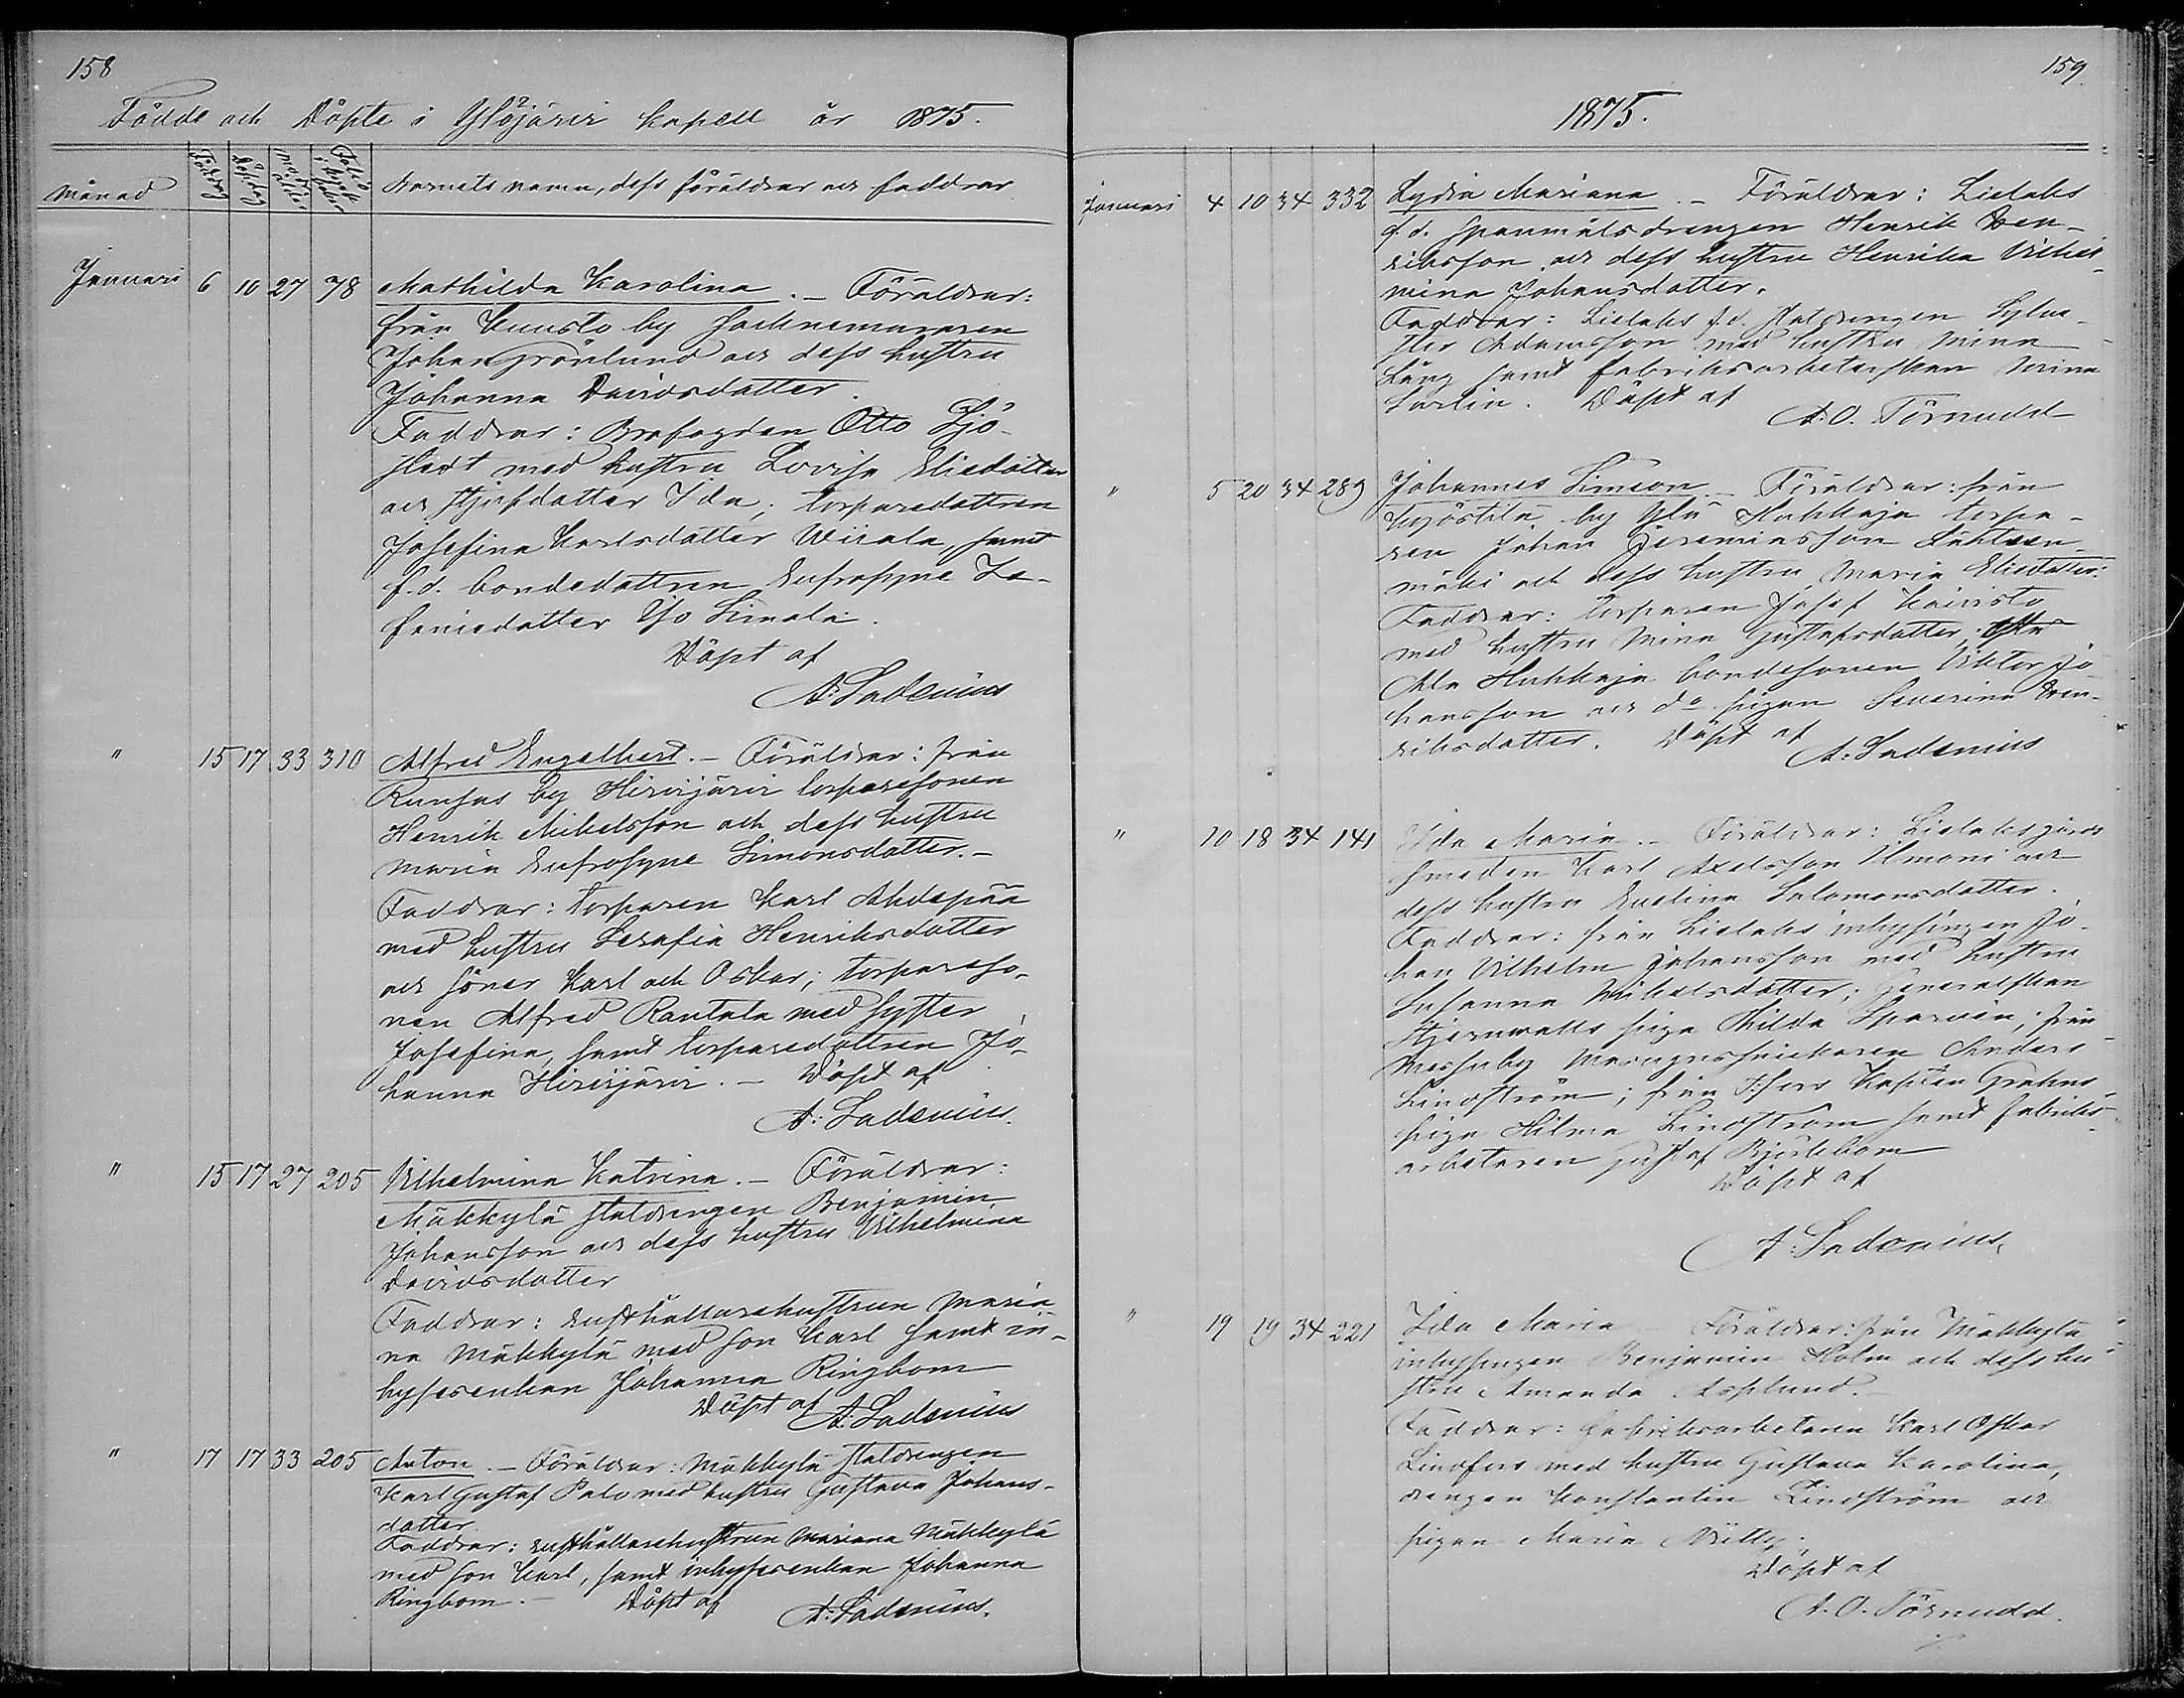 158
Födde och Döpte i Ylöjärvi kapell år 1875.
Månad
Födsl dag
Döpelsedag
Moderns ålder
Barnets namn, dess föräldrar och faddrar
Januari 6 10 27 78 Mathilda Karolina. – Föräldrar:
från Kuusto by
Johan Grönlund och dess hustru
Johanna Davidsdotter.
Faddrar: Brofogden Otto Sjö-
stedt med hustru Lovisa Eliedotter
och styfdotter Ida; torparedottren
Josefina Karlsdotter Wiirala, samt
f.d. bondedottren Eufrosyne Ze-
faniedotter Yso Simola.
Döpt af
A: Ladenius
" 15 17 33 310 Alfred Engelbert. – Föräldrar: från
Runsas by Hirvijärvi torparesonen
Henrik Mikelsson och dess hustru
Maria Eufrosyne Simonsdotter. –
Faddrar: torparen Karl Ahdespää
med hustru Serafia Henriksdotter
och söner Karl och Oskar; torpareso-
nen Alfred Rantala med syster
Josefina, samt torparedottren Jo-
hanna Hirvijärvi. – Döpt af
A: Ladenius.
" 15 17 27 205 Vilhelmina Katrina. – Föräldrar:
Mäkkylä statdrengen Benjamin
Johansson och dess hustru Vilhelmina
Davidsdotter
Faddrar: rusthållarehustrun Maria-
na Mäkkylä med son Karl samt in-
hysesenkan Johanna Ringbom
Döpt af A: Ladenius
" 17 17 33 205 Anton. – Föräldrar: Mäkkylä statdrengen
Karl Gustaf Palo med hustru Gustava Johans-
dotter.
Faddrar: rusthållarehustrun Mariana Mäkkylä
med son Karl, samt inhysesenkan Johanna
Ringbom. – Döpt af A: Ladenius.
159
1875.
Januari 4 10 34 332 Lydia Mariana. – Föräldrar: Lielaks
f.d. spanmålsdrengen Henrik Hen-
riksson och dess hustru Henrika Vilhel-
mina Johansdotter.
Faddrar: Lielaks f.d. statdrengen Sylve-
ster Adamsson med hustru Mina
Lång samt fabriksarbeterskan Serina
Karlin. Döpt af
A.O. Törnudd
" 5 20 34 289 Johannes Simeon. – Föräldrar: från
Kyöstilä by Ylä Hukkaja torpa-
ren Johan Jeremiasson Lähteen-
mäki och dess hustru Maria Eliedotter.
Faddrar: torparen Josef Koivisto
med hustru Mina Gustafsdotter;
Ala Hukkaja bondesonen Viktor Jo-
hansson och do pigan Severina Hen-
riksdotter. Döpt af A: Ladenius
" 10 18 34 141 Ida Maria. – Föräldrar: Lielaks gårds
smeden Karl Axelsson Ilmoni och
dess hustru Evelina Salomonsdotter.
Faddrar: från Lielaks inhysingen Jo-
han Vilhelm Johansson med hustru
Susanna Mikelsdotter; Generalskan
Stjernvalls piga Hilda Sparvin; från
Messuby Anders
Lindström; från T:fors Kapten Grahns
piga Hilma Lindström samt fabriks-
arbetaren Gustaf Björkbom
Döpt af
A: Ladenius,
" 19 19 34 221 Ida Maria Föräldrar: från Mäkkylä
inhysingen Benjamin Holm och dess hu-
stru Amanda Asplund.
Faddrar: fabriksarbetaren Karl Oskar
Lindfors med hustru Gustava Karolina,
drengen Konstantin Lindström och
pigan Maria
Döpt af
A. O. Törnudd.